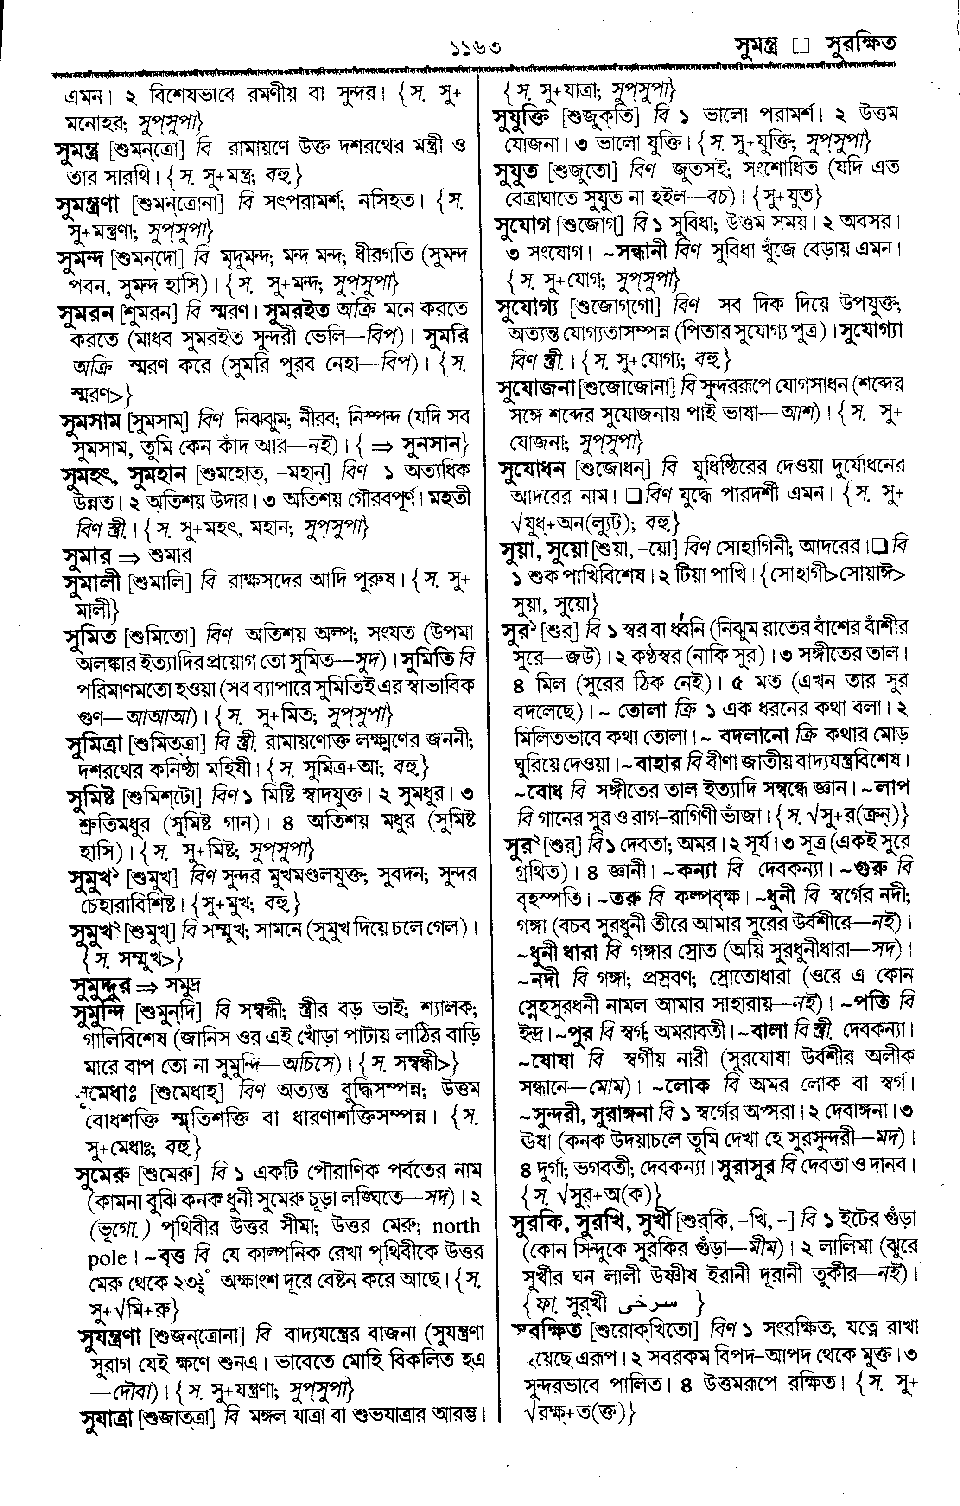 ১১৬৩
সুমন্ত্র [] সুরক্ষিত
এমন। ২ বিশেষভাবে রমণীয় বা সুন্দর। {স. সু+
মনোহর; সুপ্‌সুপা}
সুমন্ত্র [শুমন্‌ত্রো] বি রামায়ণে উক্ত দশরথের মন্ত্রী ও
তার সারথি। {স. সু+মন্ত্র; বহু.}
সুমন্ত্রণা [শুমন্‌ত্রোনা] বি সৎপরামর্শ; নসিহত। {স.
সু+মন্ত্রণা; সুপ্‌সুপা}
সুমন্দ [শুমন্‌দো] বি মৃদুমন্দ; মন্দ মন্দ; ধীরগতি (সুমন্দ
পবন, সুমন্দ হাসি)। {স. সু+মন্দ; সুপ্‌সুপা}
সুমরন [শুমরন] বি স্মরণ। সুমরইত অক্রি মনে করতে
করতে (মাধব সুমরইত সুন্দরী ভেলি—বিপ)। সুমরি
অক্রি স্মরণ করে (সুমরি পুরব নেহা—বিপ)। {স.
স্মরণ>}
সুমসাম [সুমসাম্] বিণ নিঝঝুম; নীরব; নিস্পন্দ (যদি সব
সুমসাম, তুমি কেন কাঁদ আর—নই)। {⇒ সুনসান}
সুমহৎ, সুমহান [শুমহোত্, -মহান্] বিণ ১ অত্যধিক
উন্নত। ২ অতিশয় উদার। ৩ অতিশয় গৌরবপূর্ণ। মহতী
বিণ স্ত্রী.। {স. সু+মহৎ, মহান; সুপ্‌সুপা}
সুমার ⇒ শুমার
সুমালী [শুমালি] বি রাক্ষসদের আদি পুরুষ। {স. সু+
মালী}
সুমিত [শুমিতো] বিণ অতিশয় অল্প; সংযত (উপমা
অলঙ্কার ইত্যাদির প্রয়োগ তো সুমিত—সুদ)। সুমিতি বি
পরিমাণমতো হওয়া (সব ব্যাপারে সুমিতিই এর স্বাভাবিক
গুণ—আআআ)। {স. সু+মিত; সুপ্‌সুপা}
সুমিত্রা [শুমিত্‌ত্রা] বি স্ত্রী. রামায়ণোক্ত লক্ষ্মণের জননী;
দশরথের কনিষ্ঠা মহিষী। {স. সুমিত্র+আ; বহু.}
সুমিষ্ট [শুমিশ্‌টো] বিণ ১ মিষ্টি স্বাদযুক্ত। ২ সুমধুর। ৩
শ্রুতিমধুর (সুমিষ্ট গান)। ৪ অতিশয় মধুর (সুমিষ্ট
হাসি)। {স. সু+মিষ্ট; সুপ্‌সুপা}
সুমুখ¹ [শুমুখ্] বিণ সুন্দর মুখমণ্ডলযুক্ত; সুবদন; সুন্দর
চেহারাবিশিষ্ট। {সু+মুখ; বহু.}
সুমুখ² [শুমুখ্] বি সম্মুখ; সামনে (সুমুখ দিয়ে চলে গেল)।
{স. সম্মুখ>}
সুমুদ্দুর ⇒ সমুদ্র
সুমুন্দি [শুমুন্‌দি] বি সম্বন্ধী; স্ত্রীর বড় ভাই; শ্যালক;
গালিবিশেষ (জানিস ওর এই খোঁড়া পাটায় লাঠির বাড়ি
মারে বাপ তো না সুমুন্দি—অচিসে)। {স. সম্বন্ধী>}
সুমেধাঃ [শুমেধাহ্] বিণ অত্যন্ত বুদ্ধিসম্পন্ন; উত্তম
বোধশক্তি স্মৃতিশক্তি বা ধারণাশক্তিসম্পন্ন। {স.
সু+মেধাঃ; বহু.}
সুমেরু [শুমেরু] বি ১ একটি পৌরাণিক পর্বতের নাম
(কামনা বুঝি কনক ধুনী সুমেরু চূড়া লঙ্ঘিতে—সদ)। ২
(ভূগো.) পৃথিবীর উত্তর সীমা; উত্তর মেরু; north
pole। ~বৃত্ত বি যে কাল্পনিক রেখা পৃথিবীকে উত্তর
মেরু থেকে ২৩½° অক্ষাংশ দূরে বেষ্টন করে আছে। {স.
সু+√মি+রু}
সুযন্ত্রণা [শুজন্‌ত্রোনা] বি বাদ্যযন্ত্রের বাজনা (সুযন্ত্রণা
সুরাগ যেই ক্ষণে শুনএ। ভাবেতে মোহি বিকলিত হএ
—দৌবা)। {স. সু+যন্ত্রণা; সুপ্‌সুপা}
সুযাত্রা [শুজাত্‌ত্রা] বি মঙ্গল যাত্রা বা শুভযাত্রার আরম্ভ।
{স. সু+যাত্রা; সুপ্‌সুপা}
সুযুক্তি [শুজুক্‌তি] বি ১ ভালো পরামর্শ। ২ উত্তম
যোজনা। ৩ ভালো যুক্তি। {স. সু+যুক্তি; সুপ্‌সুপা}
সুযুত [শুজুতো] বিণ জুতসই; সংশোধিত (যদি এত
বেত্রাঘাতে সুযুত না হইল—বচ)। {সু+যুত}
সুযোগ [শুজোগ্] বি ১ সুবিধা; উত্তম সময়। ২ অবসর।
৩ সংযোগ। ~সন্ধানী বিণ সুবিধা খুঁজে বেড়ায় এমন।
{স. সু+যোগ; সুপ্‌সুপা}
সুযোগ্য [শুজোগ্‌গো] বিণ সব দিক দিয়ে উপযুক্ত;
অত্যন্ত যোগ্যতাসম্পন্ন (পিতার সুযোগ্য পুত্র)। সুযোগ্যা
বিণ স্ত্রী.। {স. সু+যোগ্য; বহু}
সুযোজনা [শুজোজোনা] বি সুন্দররূপে যোগসাধন (শব্দের
সঙ্গে শব্দের সুযোজনায় পাই ভাষা—আশ)। {স. সু+
যোজনা; সুপ্‌সুপা}
সুযোধন [শুজোধন্] বি যুধিষ্ঠিরের দেওয়া দুর্যোধনের
আদরের নাম। ❑ বিণ যুদ্ধে পারদর্শী এমন। {স. সু+
√যুধ্+অন(ল্যুট্); বহু.}
সুয়া, সুয়ো [শুয়া, -য়ো] বিণ সোহাগিনী; আদরের। ❑ বি
১ শুক পাখিবিশেষ। ২ টিয়া পাখি। {সোহাগী>সোয়াঈ>
সুয়া, সুয়ো}
সুর¹ [শুর্] বি ১ স্বর বা ধ্বনি (নিঝুম রাতের বাঁশের বাঁশীর
সুরে—জউ)। ২ কণ্ঠস্বর (নাকি সুর)। ৩ সঙ্গীতের তাল।
৪ মিল (সুরের ঠিক নেই)। ৫ মত (এখন তার সুর
বদলেছে)। ~ তোলা ক্রি ১ এক ধরনের কথা বলা। ২
মিলিতভাবে কথা তোলা। ~ বদলানো ক্রি কথার মোড়
ঘুরিয়ে দেওয়া। ~বাহার বি বীণা জাতীয় বাদ্যযন্ত্রবিশেষ।
~বোধ বি সঙ্গীতের তাল ইত্যাদি সম্বন্ধে জ্ঞান। ~লাপ
বি গানের সুর ও রাগ-রাগিণী ভাঁজা। {স. √সু+র(ক্রন্)}
সুর² [শুর্] বি ১ দেবতা; অমর। ২ সূর্য। ৩ সূত্র (একই সুরে
গ্রথিত)। ৪ জ্ঞানী। ~কন্যা বি দেবকন্যা। ~গুরু বি
বৃহস্পতি। ~তরু বি কল্পবৃক্ষ। ~ধুনী বি স্বর্গের নদী;
গঙ্গা (বচব সুরধুনী তীরে আমার সুরের উর্বশীরে—নই)।
~ধুনী ধারা বি গঙ্গার স্রোত (অয়ি সুরধুনীধারা—সদ)।
~নদী বি গঙ্গা; প্রস্রবণ; স্রোতোধারা (ওরে এ কোন
স্নেহসুরধনী নামল আমার সাহারায়—নই)। ~পতি বি
ইন্দ্র। ~পুর বি স্বর্গ; অমরাবতী। ~বালা বি স্ত্রী. দেবকন্যা।
~যোষা বি স্বর্গীয় নারী (সুরযোষা উর্বশীর অলীক
সন্ধানে—মোম)। ~লোক বি অমর লোক বা স্বর্গ।
~সুন্দরী, সুরাঙ্গনা বি ১ স্বর্গের অপ্সরা। ২ দেবাঙ্গনা। ৩
ঊষা (কনক উদয়াচলে তুমি দেখা হে সুরসুন্দরী—মদ)।
৪ দুর্গা; ভগবতী; দেবকন্যা। সুরাসুর বি দেবতা ও দানব।
{স. √সুর+অ(ক)}
সুরকি, সুরখি, সুর্খী [শুর্‌কি, -খি, -] বি ১ ইটের গুঁড়া
(কোন সিন্দুকে সুরকির গুঁড়া—মীম)। ২ লালিমা (ঝুরে
সুর্খীর ঘন লালী উষ্ণীষ ইরানী দূরানী তুর্কীর—নই)।
{ফা. সুর্‌খী سرخی}
সুরক্ষিত [শুরোক্‌খিতো] বিণ ১ সংরক্ষিত; যত্নে রাখা
হয়েছে এরূপ। ২ সবরকম বিপদ-আপদ থেকে মুক্ত। ৩
সুন্দরভাবে পালিত। ৪ উত্তমরূপে রক্ষিত। {স. সু+
√রক্ষ্+ত(ক্ত)}